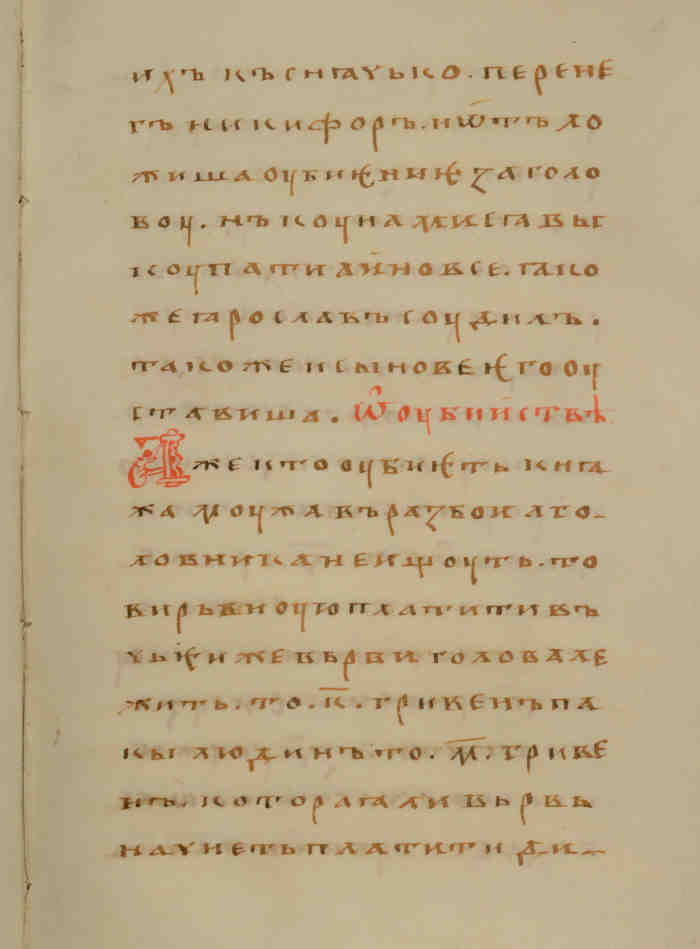 ихъ къснѧчько. перене
гъ никифоръ. и ѿтъло
жиша оубиѥниѥ за голо
воу. нъ коунами сѧ вы
коупати а ино все. ꙗко
же ꙗрославъ соудилъ.
такоже и сынове ѥго оу
ставиша. Ѿ оубииствѣ
Аже кто оубиѥть кнѧ
жа моужа въ разбои а го
ловника не ищоуть. то
вирьвноую платити въ
чьѥи же вьрви голова ле
жить. то .п҃. гривенъ па
кы людинъ то. м҃. гриве
нъ. котораꙗ ли вьрвь
начнеть платити ди